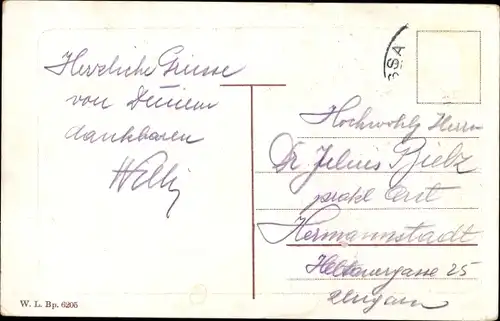 Herzliche Grüsse
von Deinem
dankbaren
Willy
SSA
Hochwohlg Herrn
Dr Julius Bielz
prakt Arzt
Hermannstadt
Heltauergasse 25
Ungarn
W. L. Bp. 6205